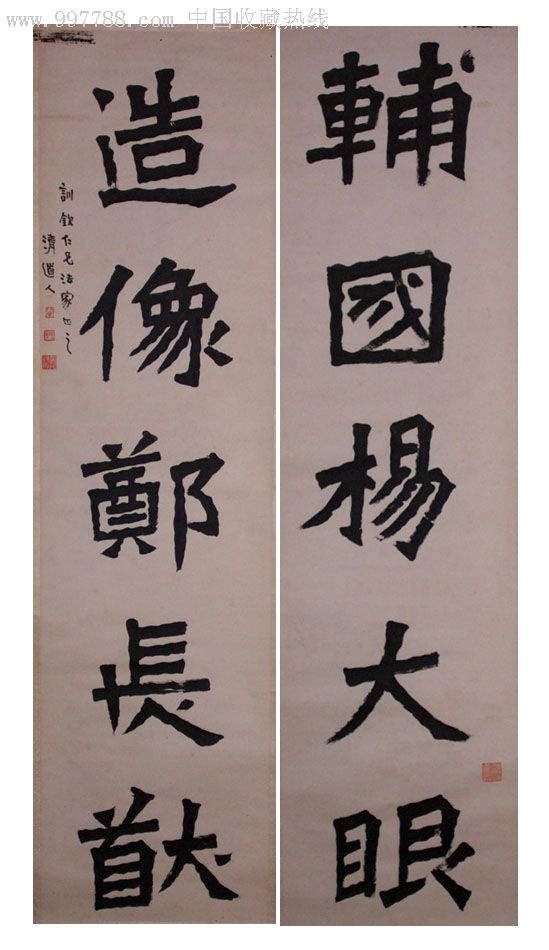 www.997788.com 中国收藏热线
輔國楊大眼
造像鄭長猷
訓欽仁兄法家正之
清道人